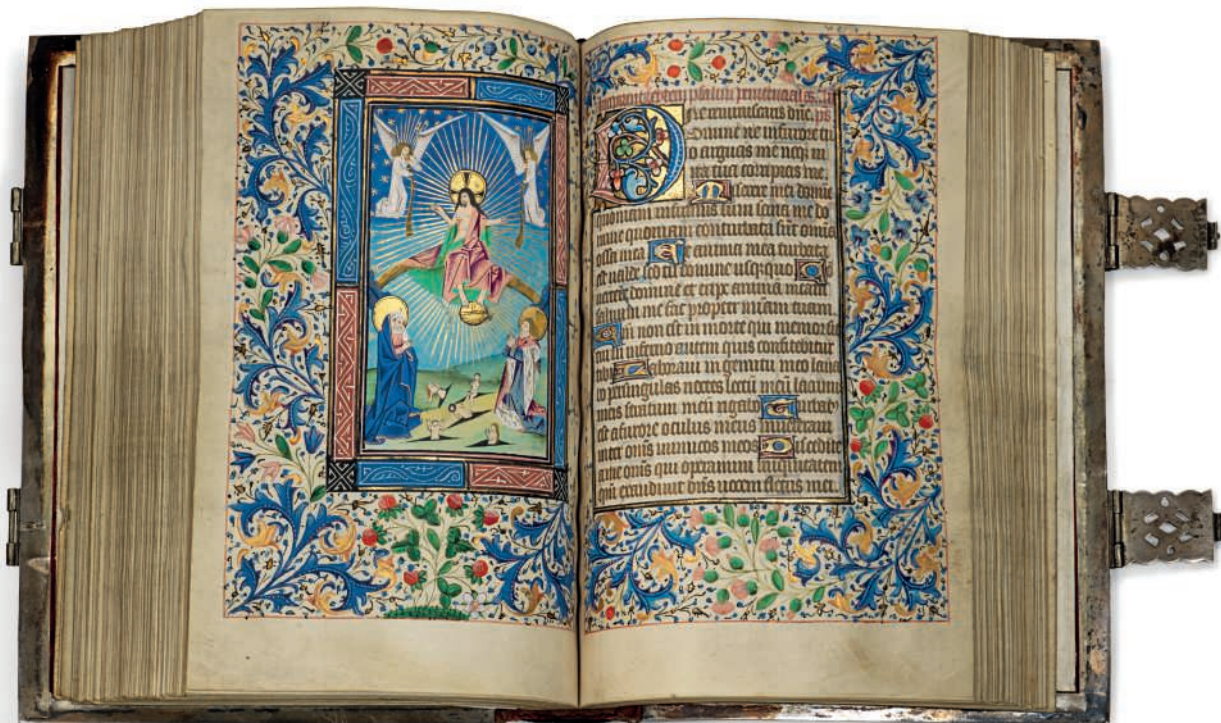 septem psalmi penitenciales
Ne reminiscaris dn̄e. ps
Domine ne in furore tu
o arguas me neq; in
ira tua corripias me.
Miserere mei domie
quoniam infirmus sum sana me do
mine quoniam conturbata sūt omīa
ossa mea Et anima mea turbata
est valde sed tu domine usq; quo Co
uertere domine et eripe animā meam
saluū me fac propter m̄iam tuam
Qm̄ non est in morte qui memor sit
tui In inferno autem quis confitebitur
tibi Laboraui in gemitu meo laua
bo per singulas noctes lectū meū lacrimi
meis stratum meū rigabo Turbatꝰ
est a furore oculus meus inueteraui
inter om̄s inimicos meos Discedite
a me om̄s qui operamini iniquitatem
qm̄ exaudiuit dn̄s uocem fletus mei.